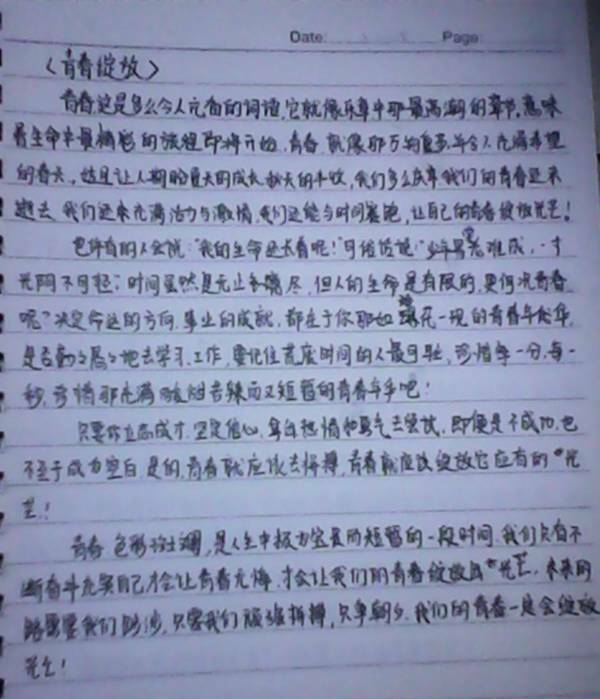 Date: Page:
《青春绽放》
青春这是多么令人充奋的词语,它就像乐章中那最高潮的章节,意味
着生命中最精彩的旅程即将开始,青春,就像那万物复苏并令人充满希望
的春天。这是让人期盼夏天的成长,秋天的丰收,我们多么庆幸我们的青春还未
逝去,我们还未充满活力与激情,我们还能与时间赛跑,让自己的青春绽放光芒!
也许有的人会说:"我的生命还长着呢!"可俗话说:"少年易老难成,一寸
光阴不可轻",时间虽然是无止无尽,但人的生命是有限的,更何况青春
呢?决定命运的方向,事业的成就,都在于你那如昙花一现的青春年华,
是否勤勤恳恳地去学习、工作,要记住荒废时间的人最可耻,珍惜每一分,每一
秒,珍惜那充满酸甜苦辣而又短暂的青春年华吧!
只要你立志成才,坚定信心,拿出热情和勇气去尝试,即便是不成功,也
不至于成为空白,是的,青春就应该去拼搏,青春就应该绽放它应有的"光
芒!
青春,色彩斑斓,是人生中极为宝贵而短暂的一段时间,我们只有不
断奋斗充实自己才会让青春无悔,才会让我们的青春绽放出"光芒",未来的
路需要我们跋涉,只要我们顽强拼搏,只争朝夕,我们的青春一定会绽放
光芒!